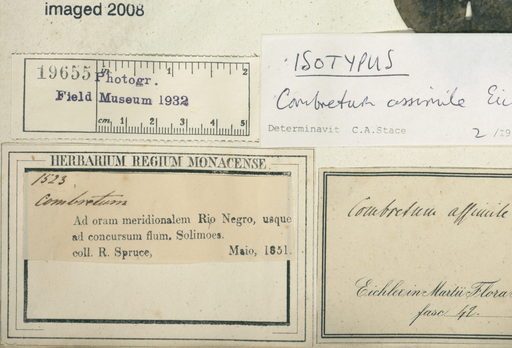 imaged 2008
19655
Photogr.
Field Museum 1932
in 1 2
cm 1 2 3 4 5
ISOTYPUS
Combretum assimile Eic
Determinavit C.A.Stace
2/19
HERBARIUM REGIUM MONACENSE.
1523
Combretum
Ad oram meridionalem Rio Negro, usque
ad concursum flum. Solimoes.
coll. R. Spruce, Maio, 1851.
Combretum assimile
Eichler in Martii Flora
fasc 42.